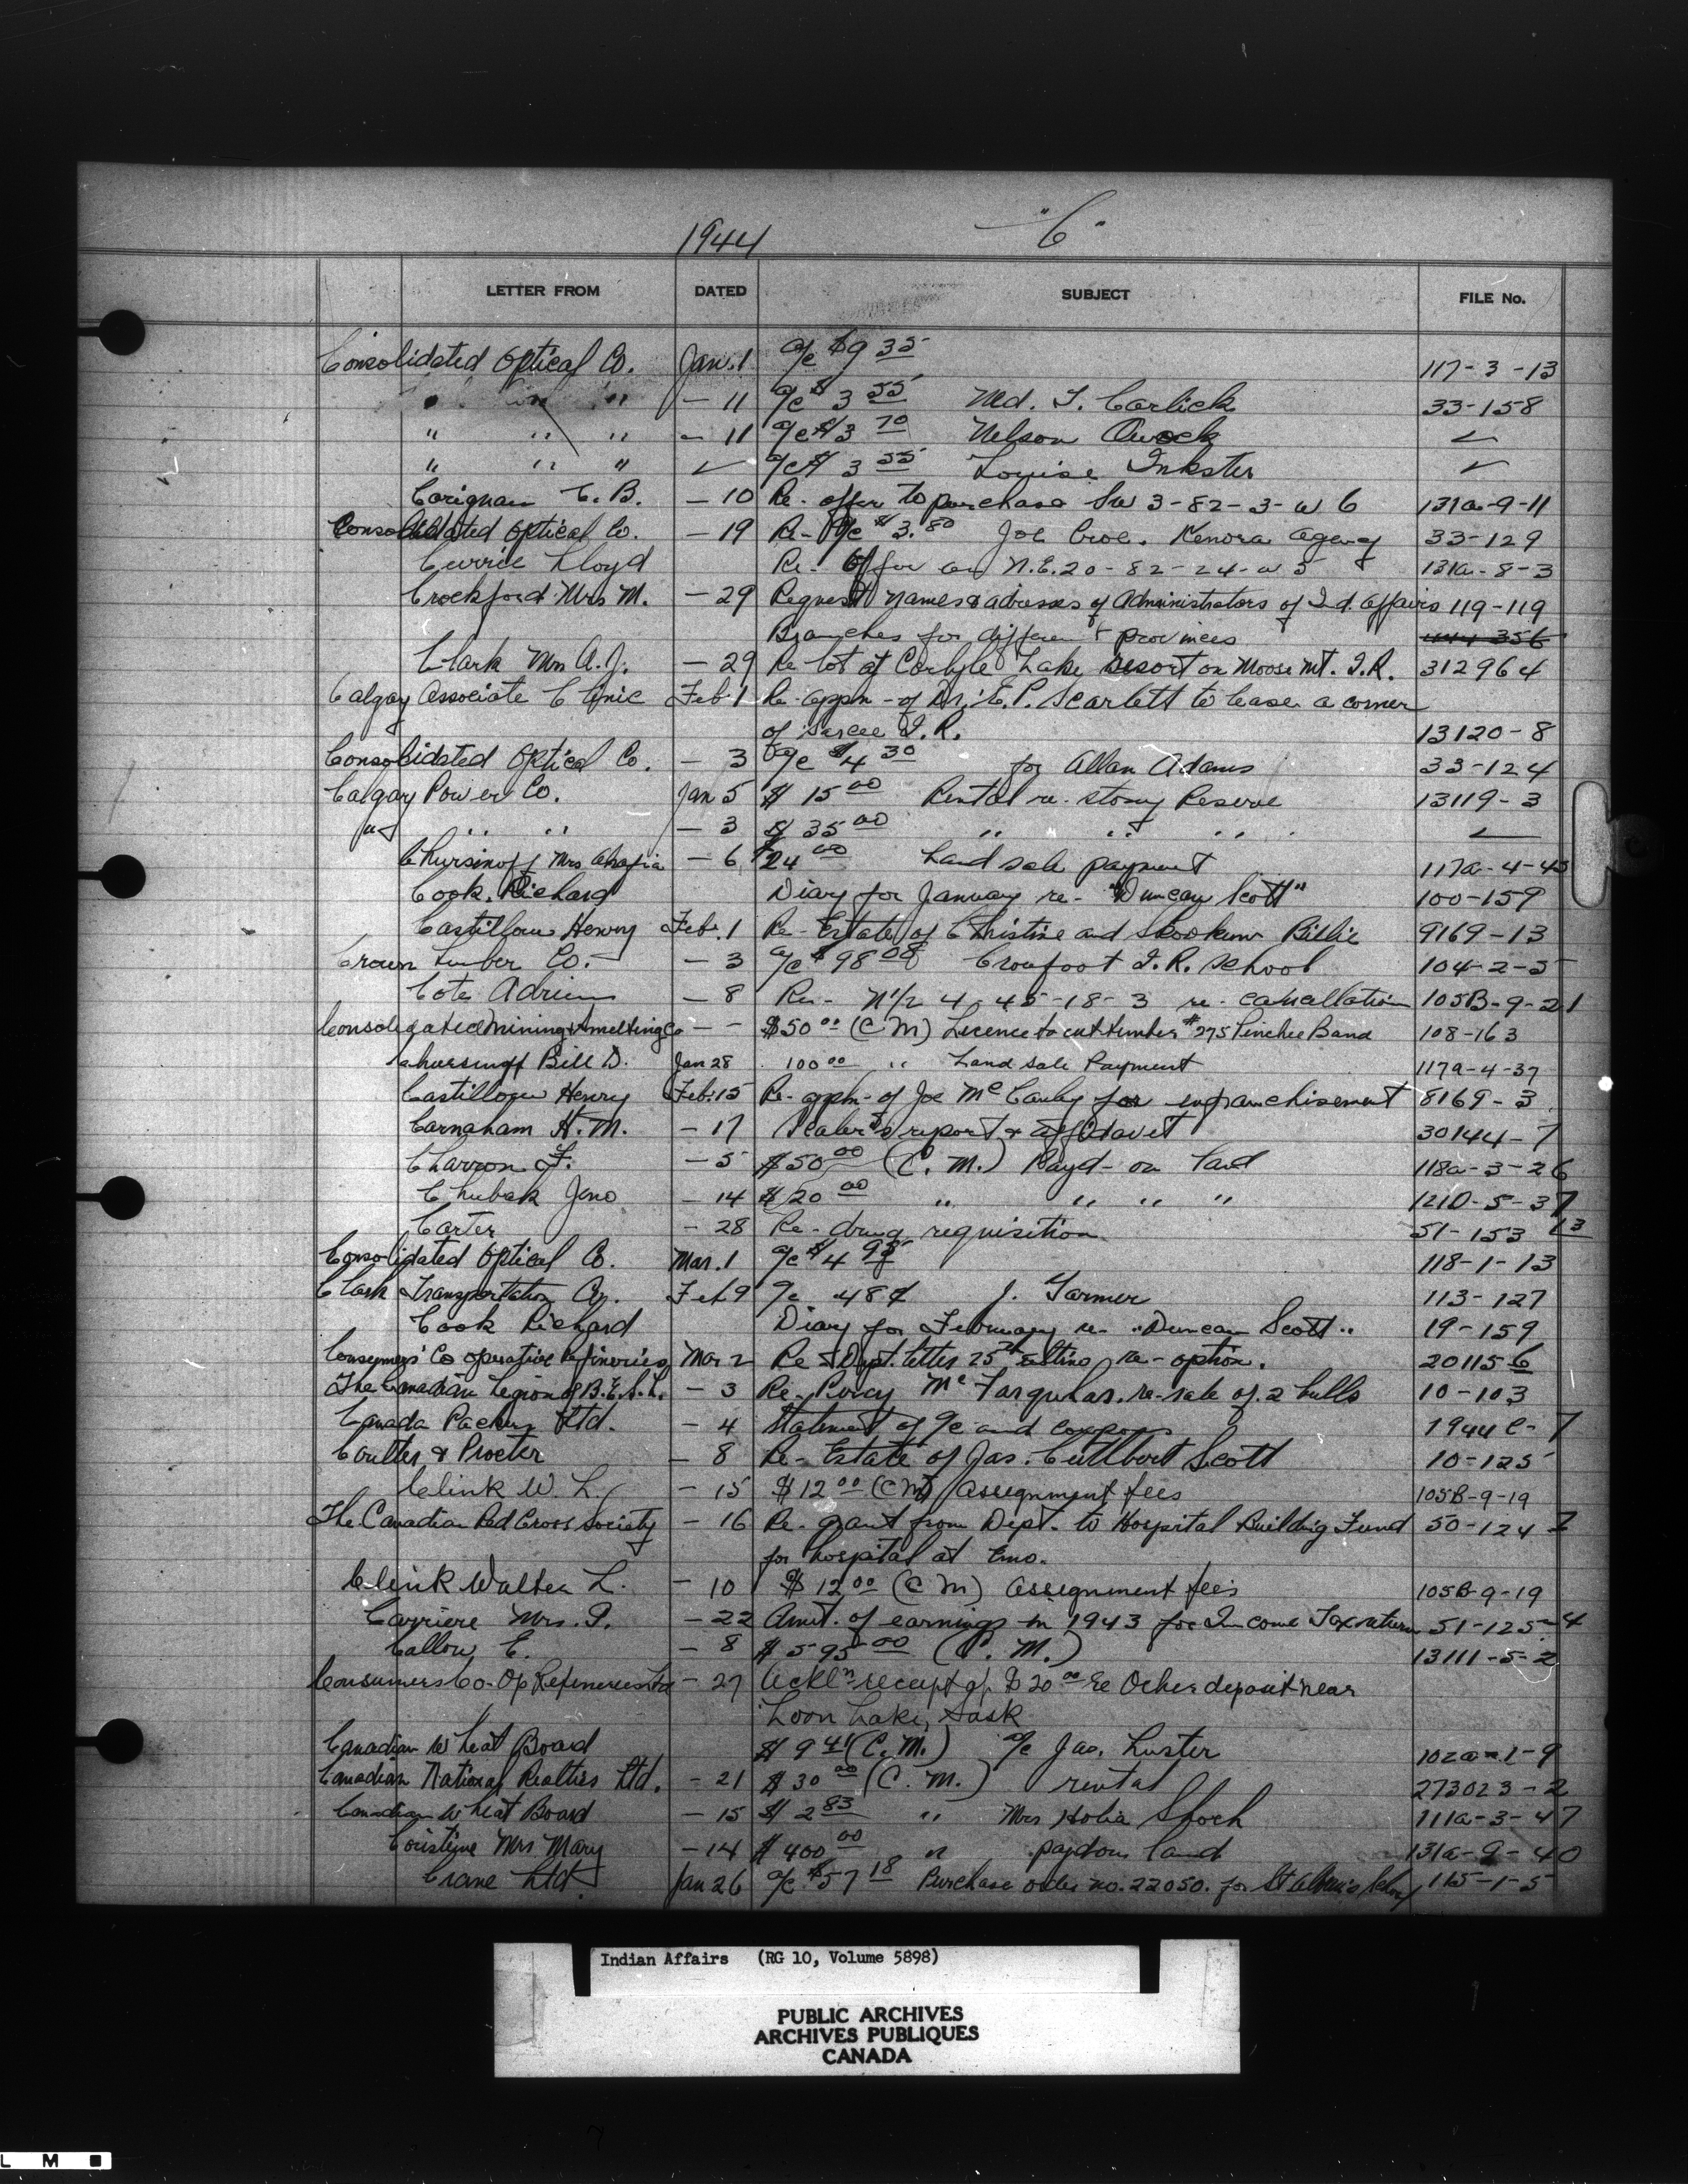 1944 "C"
LETTER FROM DATED SUBJECT FILE No.
Consolidated Optical Co. Jan. 1 a/c $9 35 117-3-13
" " " - 11 a/c $ 3 55 Md. T. Carlick 33-158
" " " - 11 a/c $3 70 Nelson ✓
" " " ✓ a/c $ 3 55 Louise Inkster ✓
Corignan C. B. - 10 Re- offer to purchase SW 3-82-3-W 6 131a-9-11
Consolidated Optical Co. - 19 Re- a/c $3.80 Joe Croe. Kenora Agency 33-129
Currie Lloyd Re- Offer on N.E.20-82-24-W 5 131a-8-3
Crockford Mrs M. - 29 Request names & adresses of Administrators of Ind. Affairs 119-119
Branches for different provinces
Clark Mrs A. J. - 29 Re lot at Carlyle Lake resort on Moose Mt. I.R. 312964
Calgary Associate Clinic Feb. 1 Re- appn- of Dr. E. P. Scarlett to lease a corner
of Sarcee I.R. 13120-8
Consolidated Optical Co. - 3 a/c $4 30 for Allan Adams 33-124
Calgary Power Co. Jan 5 $ 15 00 Rental re. Stony Reserve 13119-3
" " " - 3 $ 35 00 " " "
Chursinoff Mrs - 6 $24 00 Land sale payment 117a-4-43
Cook, Richard Diary for January re- "Duncan Scott" 100-159
Castillou Henry Feb. 1 Re- Estate of Christine and Skookum Billie 9169-13
Crown Lumber Co. - 3 a/c $98 08 Crowfoot I.R. School 104-2-5
Cote Adrien - 8 Re- N1/2 4-45-18-3 re- cancellation 105B-9-21
Consolidated Mining & Smelting Co - - $50 00 (CM) Licence to cut timber #275 Pinchee Band 108-163
Chursinoff Bill D. Jan 28 100 00 " Land sale Payment 117a-4-37
Castillou Henry Feb. 15 Re- appn- of Joe McCauley for enfranchisement 8169-3
Carnaham H. M. - 17 Scaler's report & affidavit 30144-7
Charron F. - 5 $50 00 (C. M.) Payt- on land 118a-3-26
Chubak Jno - 14 $20 00 " " " " 121D-5-37
Carter - 28 Re- drug requisition 51-153 13
Consolidated Optical Co. Mar. 1 a/c $4 95 118-1-13
Clark Transportation Co. Feb 9 a/c 48¢ J. Farmer 113-127
Cook Richard Diary for February re- "Duncan Scott" 19-159
Consumers' Co operative Refineries Mar 2 Re Dept. letter 25th re- option. 201156
The Canadian Legion of B.E.S.L. - 3 Re- Percy McFarquhar, re- sale of 2 bulls 10-103
Canada Packers Ltd. - 4 Statement of a/c and coupons 1944 C-7
Coulter & Procter - 8 Re- Estate of Jas. Cuthbert Scott 10-125
Clink W. L. - 15 $12 00 (CM) Assignment fees 105B-9-19
The Canadian Red Cross Society - 16 Re- grant from Dept. to Hospital Building Fund 50-124 2
for hospital at Emo.
Clink Walter L. - 10 $12 00 (CM) Assignment fees 105B-9-19
Carriere Mrs. P. - 22 Amt. of earnings in 1943 for Income Tax return 51-125-4
Callow E. - 8 $595 00 (C. M.) 13111-5-2
Consumers Co-Op Refineries Ltd - 27 Ackln receipt of $20 00 re Ocher deposit near
Loon Lake, Sask
Canadian Wheat Board $ 9 41 (C. M.) a/c Jas. Luster 102a-1-9
Canadian National Realties Ltd. - 21 $30 00 (C. M.) rental 273023-2
Canadian Wheat Board - 15 $ 2 83 " Mrs 111a-3-47
Coristine Mrs Mary - 14 $400 00 " payt on land 131a-9-40
Crane Ltd. Jan 26 a/c $57 18 Purchase order no. 22050. for St Alban's School 115-1-5
Indian Affairs (RG 10, Volume 5898)
PUBLIC ARCHIVES
ARCHIVES PUBLIQUES
CANADA
L M